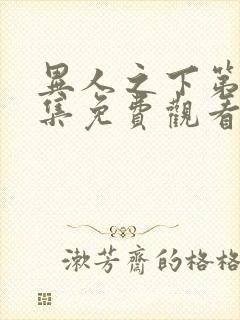 異人之下第
集免費觀看
漱芳齋的格格